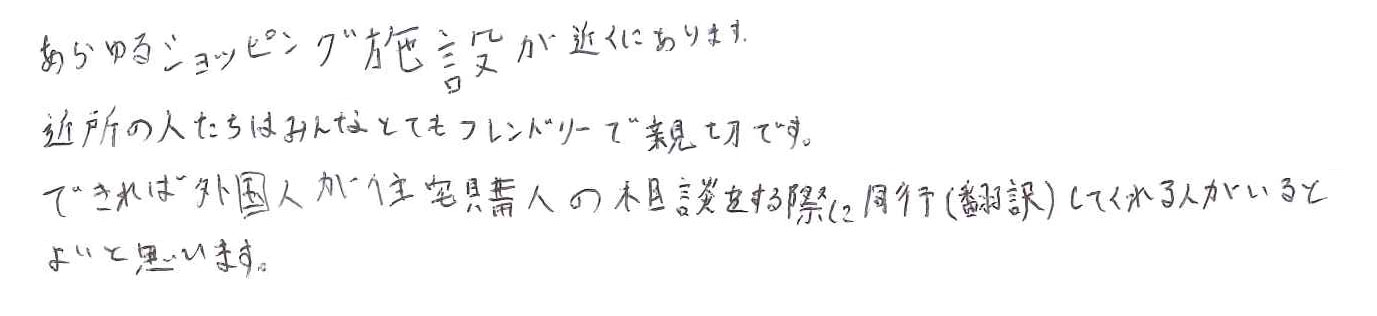 あらゆるショッピング施設が近くにあります.
近所の人たちはみんなとてもフレンドリーで親切です。
できれば外国人が住宅購入の相談をする際に同行(翻訳)してくれる人がいると
よいと思います。